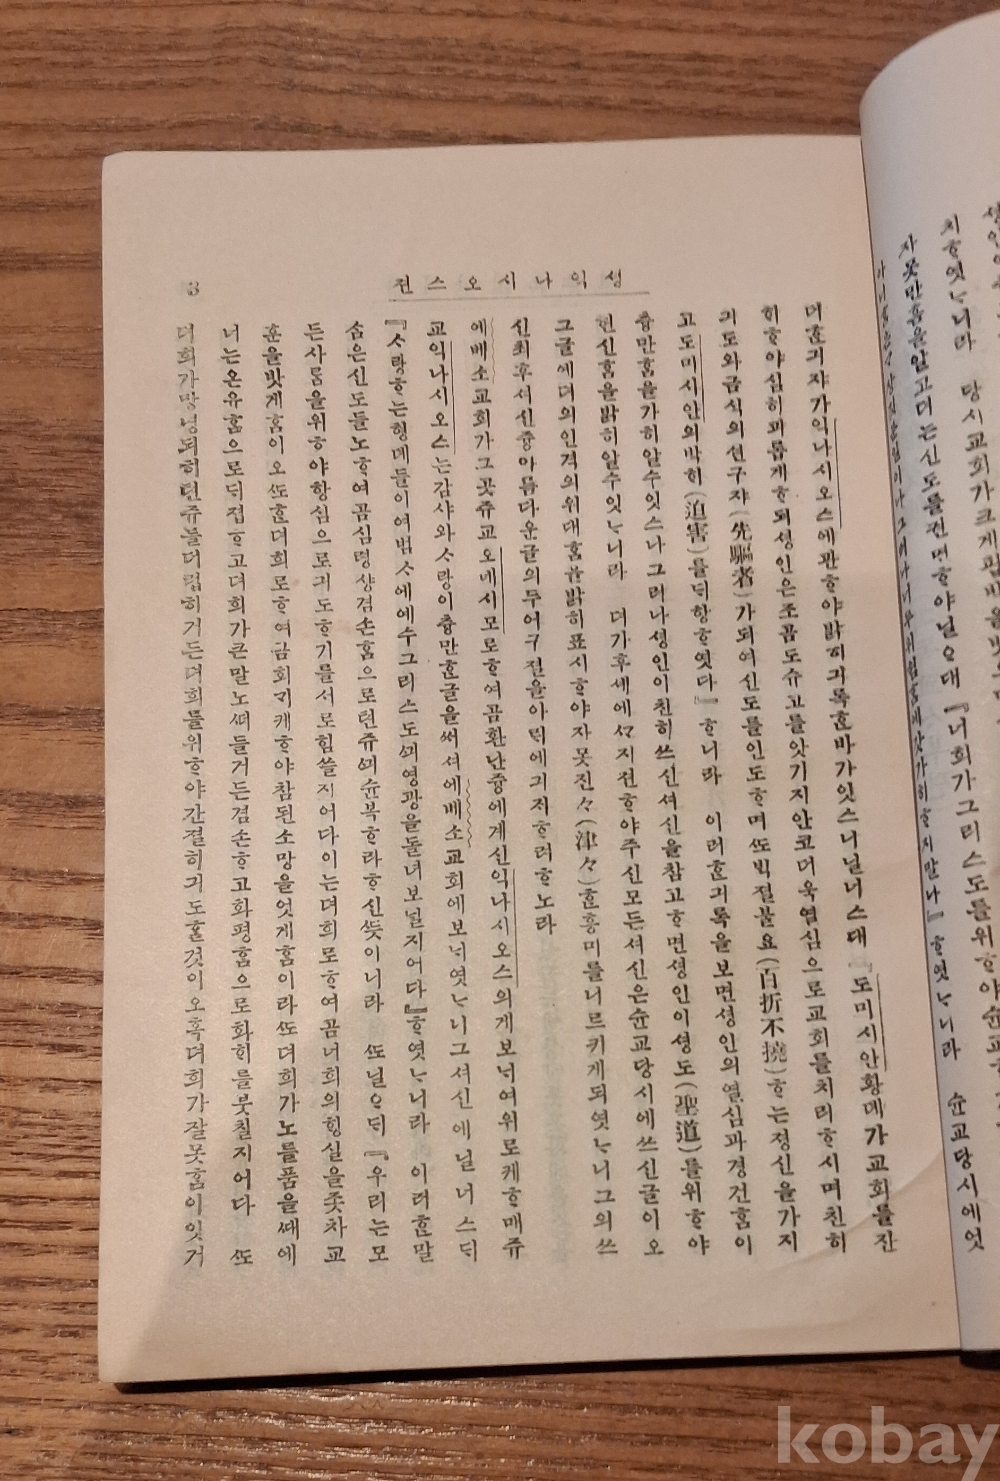 치ᄒᆞ엿ᄂᆞ니라 당시교회가크게핍박을밧으
자못만흠을알고뎌는신도를권면ᄒᆞ야닐ᄋᆞ대『너희가그리스도를위ᄒᆞ야슌교
ᄒᆞ지말나』ᄒᆞ엿ᄂᆞ니라 슌교당시에엇
젼스오시나익성
3
더훈긔쟈가익나시오스에관ᄒᆞ야밝히긔록ᄒᆞᆫ바가잇스니닐너스대『도미시안황뎨가교회를잔
히ᄒᆞ야심히괴롭게ᄒᆞ되셩인은조곰도슈고를앗기지안코더욱열심으로교회를치리ᄒᆞ시며친히
긔도와금식의션구쟈(先驅者)가되여신도를인도ᄒᆞ며ᄯᅩ빅절불요(百折不撓)ᄒᆞ는정신을가지
고도미시안의박히(迫害)를ᄃᆡ항ᄒᆞ엿다』ᄒᆞ니라 이러ᄒᆞᆫ긔록을보면셩인의열심과경건홈이
츙만홈을가히알수잇스나그러나셩인이친히쓰신셔신을참고ᄒᆞ면셩인이셩도(聖道)를위ᄒᆞ야
헌신홈을밝히알수잇ᄂᆞ니라 뎌가후세에ᄭᆞ지젼ᄒᆞ야주신모든셔신은슌교당시에쓰신글이오
그글에뎌의인격의위대홈을밝히표시ᄒᆞ야자못진々(津々)ᄒᆞᆫ흥미를니르키게되엿ᄂᆞ니그의쓰
신최후셔신즁아름다운글의두어구졀을아ᄅᆡ에긔지ᄒᆞ려ᄒᆞ노라
에베소교회가그곳쥬교오네시모로ᄒᆞ여곰환난즁에계신익나시오스의게보ᄂᆡ여위로케ᄒᆞ매쥬
교익나시오스는감샤와ᄉᆞ랑이츙만ᄒᆞᆫ글을써셔에베소교회에보ᄂᆡ엿ᄂᆞ니그셔신에닐너스ᄃᆡ
『ᄉᆞ랑ᄒᆞ는형뎨들이여범ᄉᆞ에예수그리스도ᄭᅴ영광을돌녀보낼지어다』ᄒᆞ엿ᄂᆞ니라 이러ᄒᆞᆫ말
숨은신도들노ᄒᆞ여곰심령샹겸손홈으로텬쥬ᄭᅴ슌복ᄒᆞ라ᄒᆞ신ᄯᅳᆺ이니라 ᄯᅩ닐ᄋᆞᄃᆡ『우리는모
든사ᄅᆞᆷ을위ᄒᆞ야항심으로긔도ᄒᆞ기를서로힘쓸지어다이는뎌희로ᄒᆞ여곰너희의ᄒᆡᆼ실을좃차교
훈을밧게홈이오ᄯᅩᄒᆞᆫ뎌희로ᄒᆞ여금회ᄀᆡ케ᄒᆞ야참된소망을엇게홈이라ᄯᅩ뎌희가노를품을ᄯᅢ에
너는온유홈으로ᄃᆡ졉ᄒᆞ고뎌희가큰말노ᄯᅥ들거든겸손ᄒᆞ고화평홈으로화히를붓칠지어다 ᄯᅩ
뎌희가망녕되히텬쥬를더럽히거든뎌희를위ᄒᆞ야간절히긔도ᄒᆞᆯ것이오혹뎌희가잘못홈이잇거
kobay